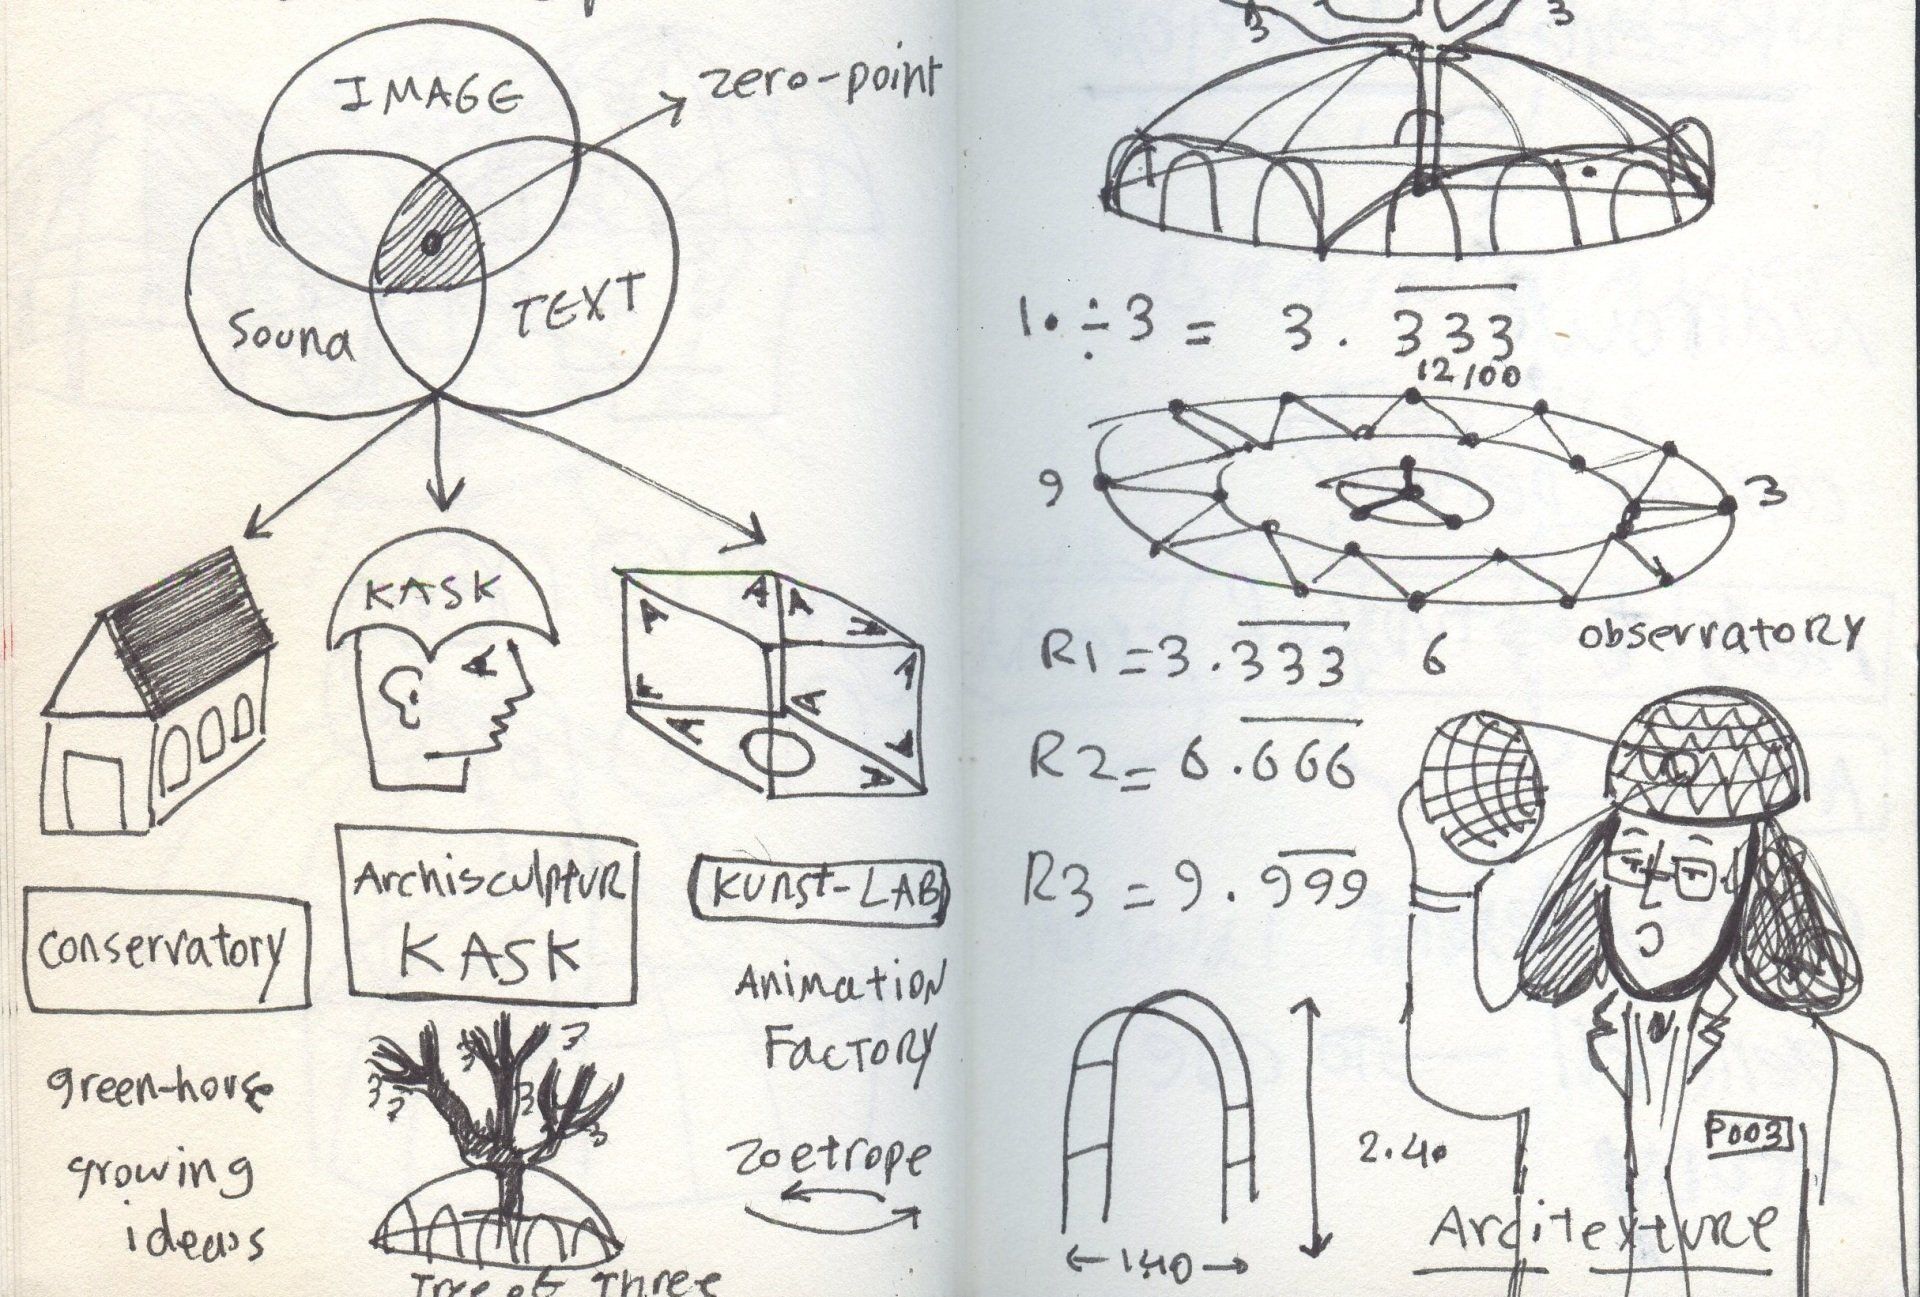 IMAGE
zero-point
Sound
TEXT
KASK
A
A
A
A
A
A
A
A
A
A
Archisculptur
KASK
KUNST-LAB
conservatory
Animation
Factory
green-house
growing
ideas
3
3
3
3
3
3
zoetrope
Tree of Three
3
3
10÷3 = 3.333
12/100
9
3
6
observatory
R1=3.333
R2=6.666
R3=9.999
P003
2.40
1.40
Arcitexture